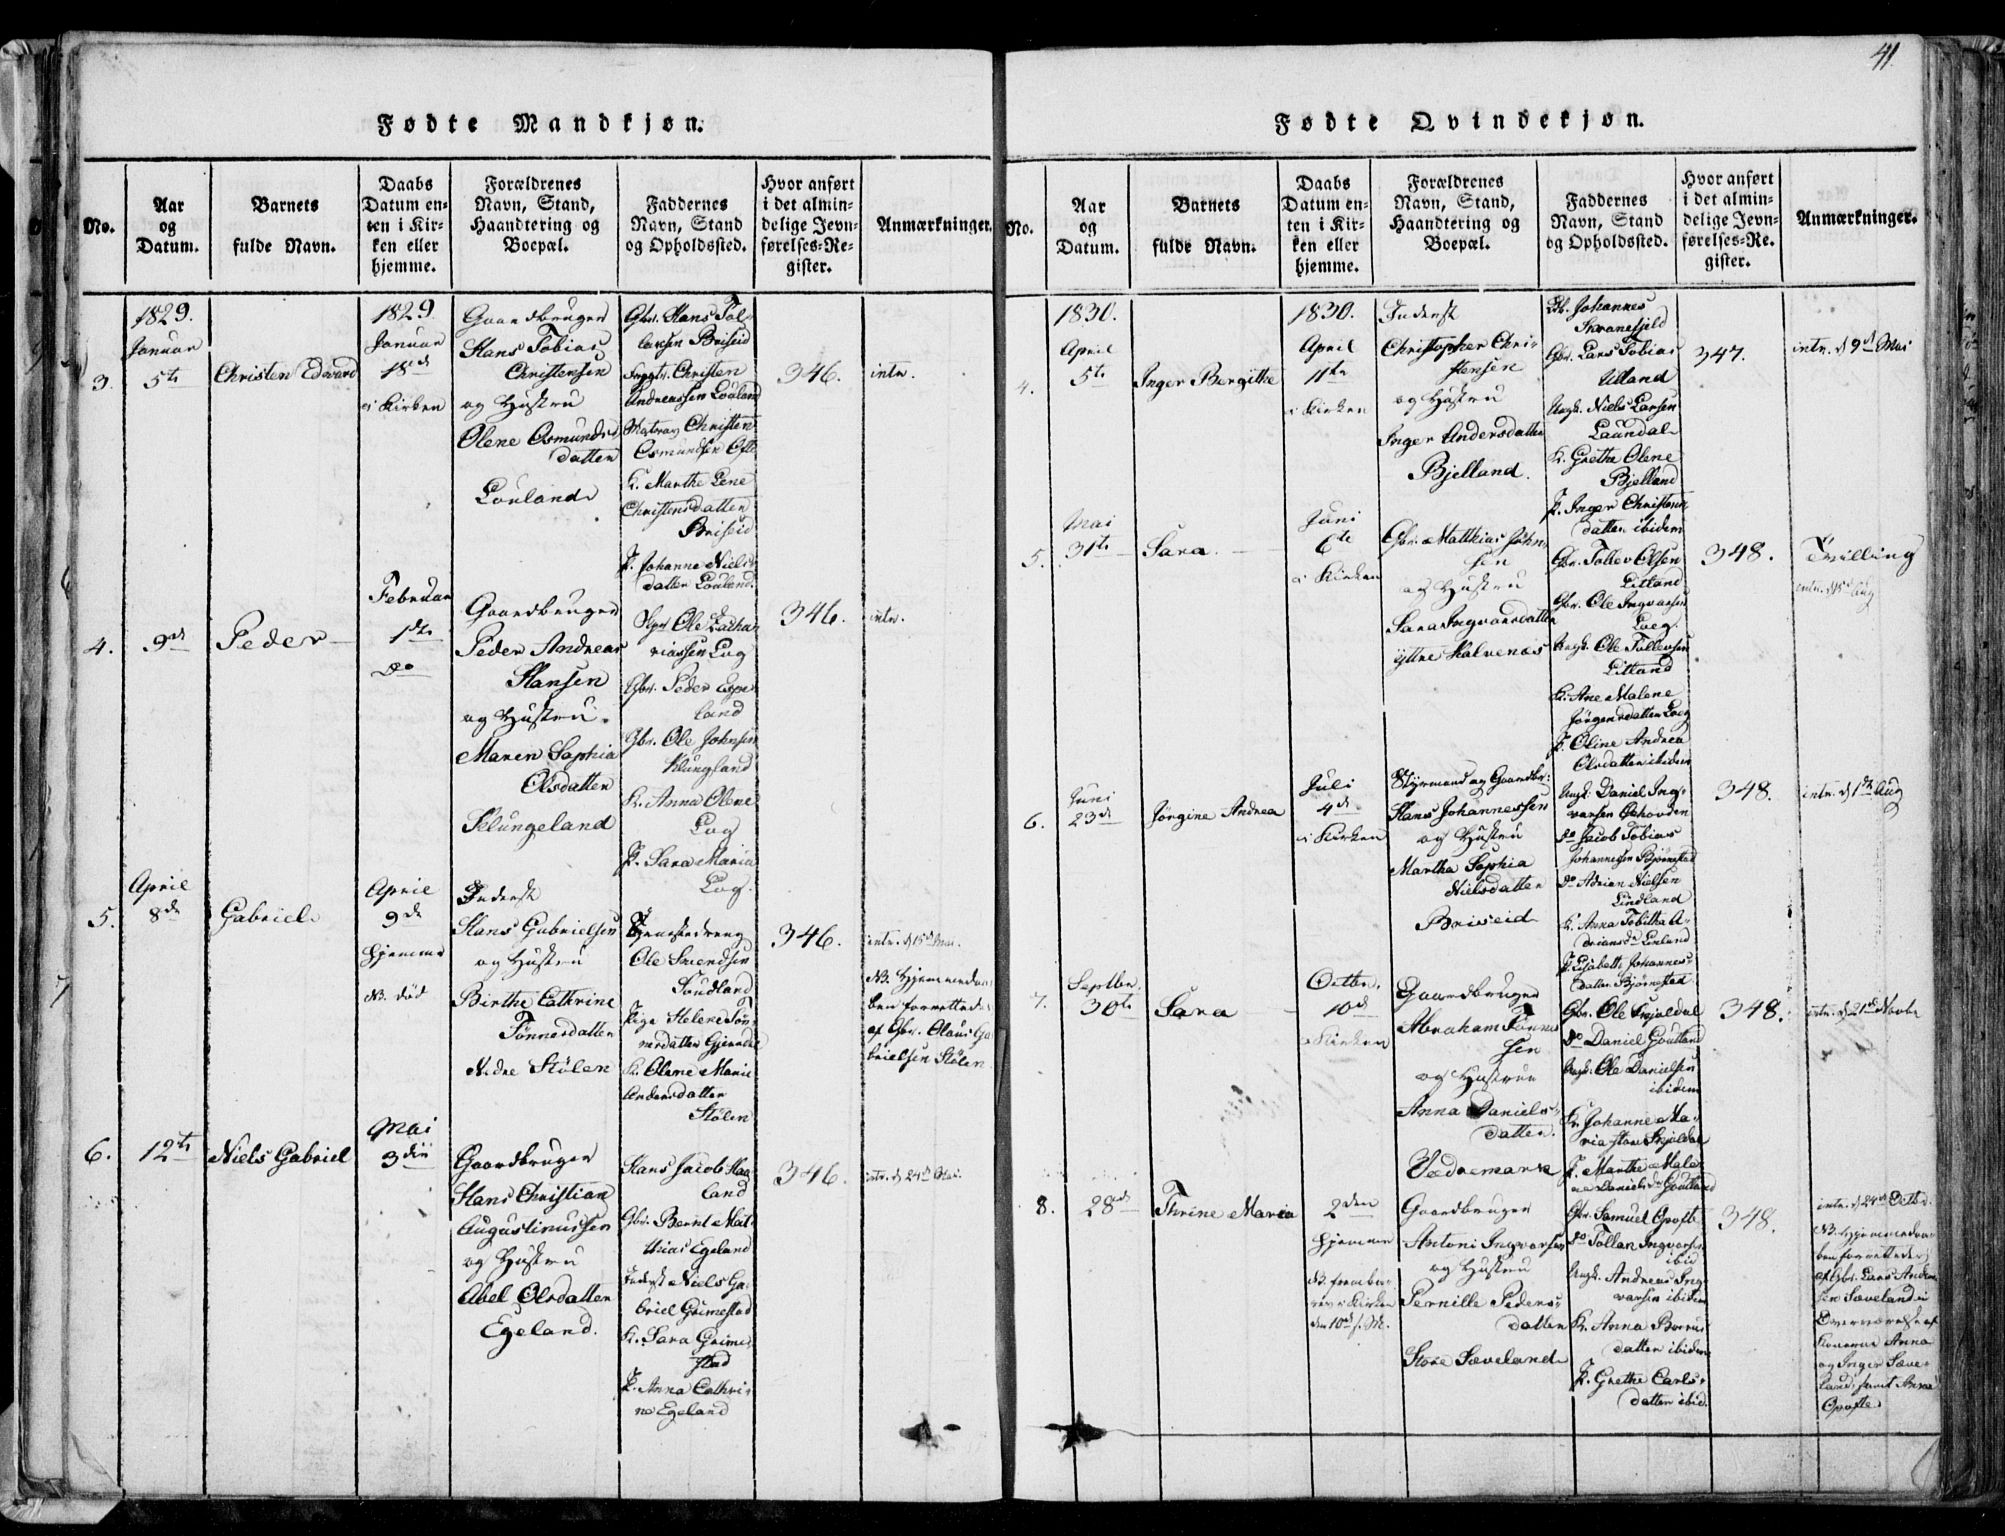 41.
Fødte Mandkjøn.
No.
Aar
og
Datum.
Barnets
fulde Navn.
Daabs
Datum en-
ten i Kir-
ken eller
hjemme.
Forældrenes
Navn, Stand,
Haandtering og
Boepæl.
Faddernes
Navn, Stand
og Opholdssted.
Hvor anført
i det almin-
delige Jevn-
førelses-Re-
gister.
Anmærkninger.
3.
1829.
Januar
5te
Christen Edvard
1829
Januar
18de
i Kirken
Gaardbruger
Hans Tobias
Christensen
og Hustru
Olene Osmunds
datten
Louland
Gbr. Hans Tol-
lavsen Briseid
Christen
Andreassen Louland
Christen
Osmundsen Ofte
K. Marthe Lene
Christensdatten
Briseid
P. Johanne Niels-
datten Louland.
346.
intr.
4.
9de
Peder
Februar
1ste
do
Gaardbruger
Peder Andreas
Hansen
og Hustru
Maren Sophia
Olsdatten
Klungeland
Ole Zacha-
riassen Log
Gbr. Peder Espe-
land
Gbr. Ole Johnsen
Klungland
K. Anna Olene
Log
P. Sara Maria
Log.
346.
intr.
5.
April
8de
Gabriel
April
9de
Hjemme
NB. død
Inderst
Hans Gabrielsen
og Hustru
Birthe Cathrine
Tønnesdatten
Nedre Stølen
Tjenestedreng
Ole Svendsen
Soudland
Pige Helene Tøn-
nesdatten Gjerdal
K. Olene Marie
Andersdatten
Stølen
346.
intr. d 15de Mai.
NB. Hjemmedaa-
ben forrettedes
af Gbr. Olaus Ga-
brielsen Stølen
6.
12te
Niels Gabriel
Mai
3die
Gaardbruger
Hans Christian
Augustinussen
og Hustru
Abel Olsdatten
Egeland.
Hans Jacob Haa-
land
Gbr. Bernt Mat-
thias Egeland
Inderst Niels Ga-
briel Grimestad
K. Sara Grime-
stad
P. Anna Cathri-
ne Egeland
346.
intr. d 24de Mai.
Fødte Qvindekjøn.
No.
Aar
og
Datum.
Barnets
fulde Navn.
Daabs
Datum en-
ten i Kir-
ken eller
hjemme.
Forældrenes
Navn, Stand,
Haandtering og
Boepæl.
Faddernes
Navn, Stand
og Opholdssted.
Hvor anført
i det almin-
delige Jevn-
førelses-Re-
gister.
Anmærkninger.
4.
1830.
April
5te
Inger Bergitte
1830.
April
11te
i Kirken
Inderst
Christopher Chri-
stensen
og Hustru
Inger Andersdatten
Bjelland.
Johannes
Skranefjeld
Gbr. Lars Tobias
Ulland
Ungk. Niels Larsen
Laundal
K. Grethe Olene
Bjelland
P. Inger Christens-
datten ibidem
347.
intr. d 9de Mai
5.
Mai
31te
Sara
Juni
6te
i Kirken
Gbr. Matthias John-
sen
og Hustru
Sara Ingvarsdatten
yttre Halvenæs
Gbr. Tollev Olsen
Litland
Gbr. Ole Ingvarsen
Loeg
Ungk. Ole Tollevsen
Litland
K. Ane Malene
Jørgensdatten Loeg
P. Oline Andrea
Olsdatten ibidem
348.
Tvilling
intr. d 15de Aug
6.
Juni
23de
Jørgine Andrea
Juli
4de
i Kirken
Styrmand og Gaardbr:
Hans Johannessen
og Hustru
Martha Sophia
Nielsdatten
Briseid
Ungk. Daniel Ing-
varsen
do Jacob Tobias
Johannessen Bjørnestad
do Adrian Nielsen
Lindland
K. Anna Tobitha A-
driansdr Linland
P. Elisabeth Johannes-
datten Bjørnestad
348.
intr. d 1ste Aug
7.
Septbr.
30te
Sara
Octbr.
10de
i Kirken
Gaardbruger
Abraham Tønnes
sen
og Hustrue
Anna Daniels-
datten.
Vedremark
Gbr. Ole Skjoldal
do Daniel Goutland
Ungk. Ole Danielsen
ibidem
K. Johanne Ma-
ria store Skjoldal
P. Marthe Male-
ne Danielsdr Goutland
348.
intr. d 21de Novbr
8.
28de
Thrine Maria
2den
Hjemme
NB. frembaa-
ren i Kirken
den 10de s. M.
Gaardbruger
Antoni Ingvarsen
og Hustru
Pernille Peders-
datten
Store Sæveland
Gbr. Samuel Opofte
do Tollan Ingvarsen
ibid
Ungk. Andreas Ing-
varsen ibidem
K. Anna
datten ibidem
P. Grethe Carls-
datten ibid.
348.
intr. d 24de Octbr.
NB. Hjemmedaa-
ben forrettedes
af Gbr. Lars Ander-
sen Sæveland i
Overværelse af
Konerne Anna
og Inger Sæve-
land, samt Anna
Opofte.